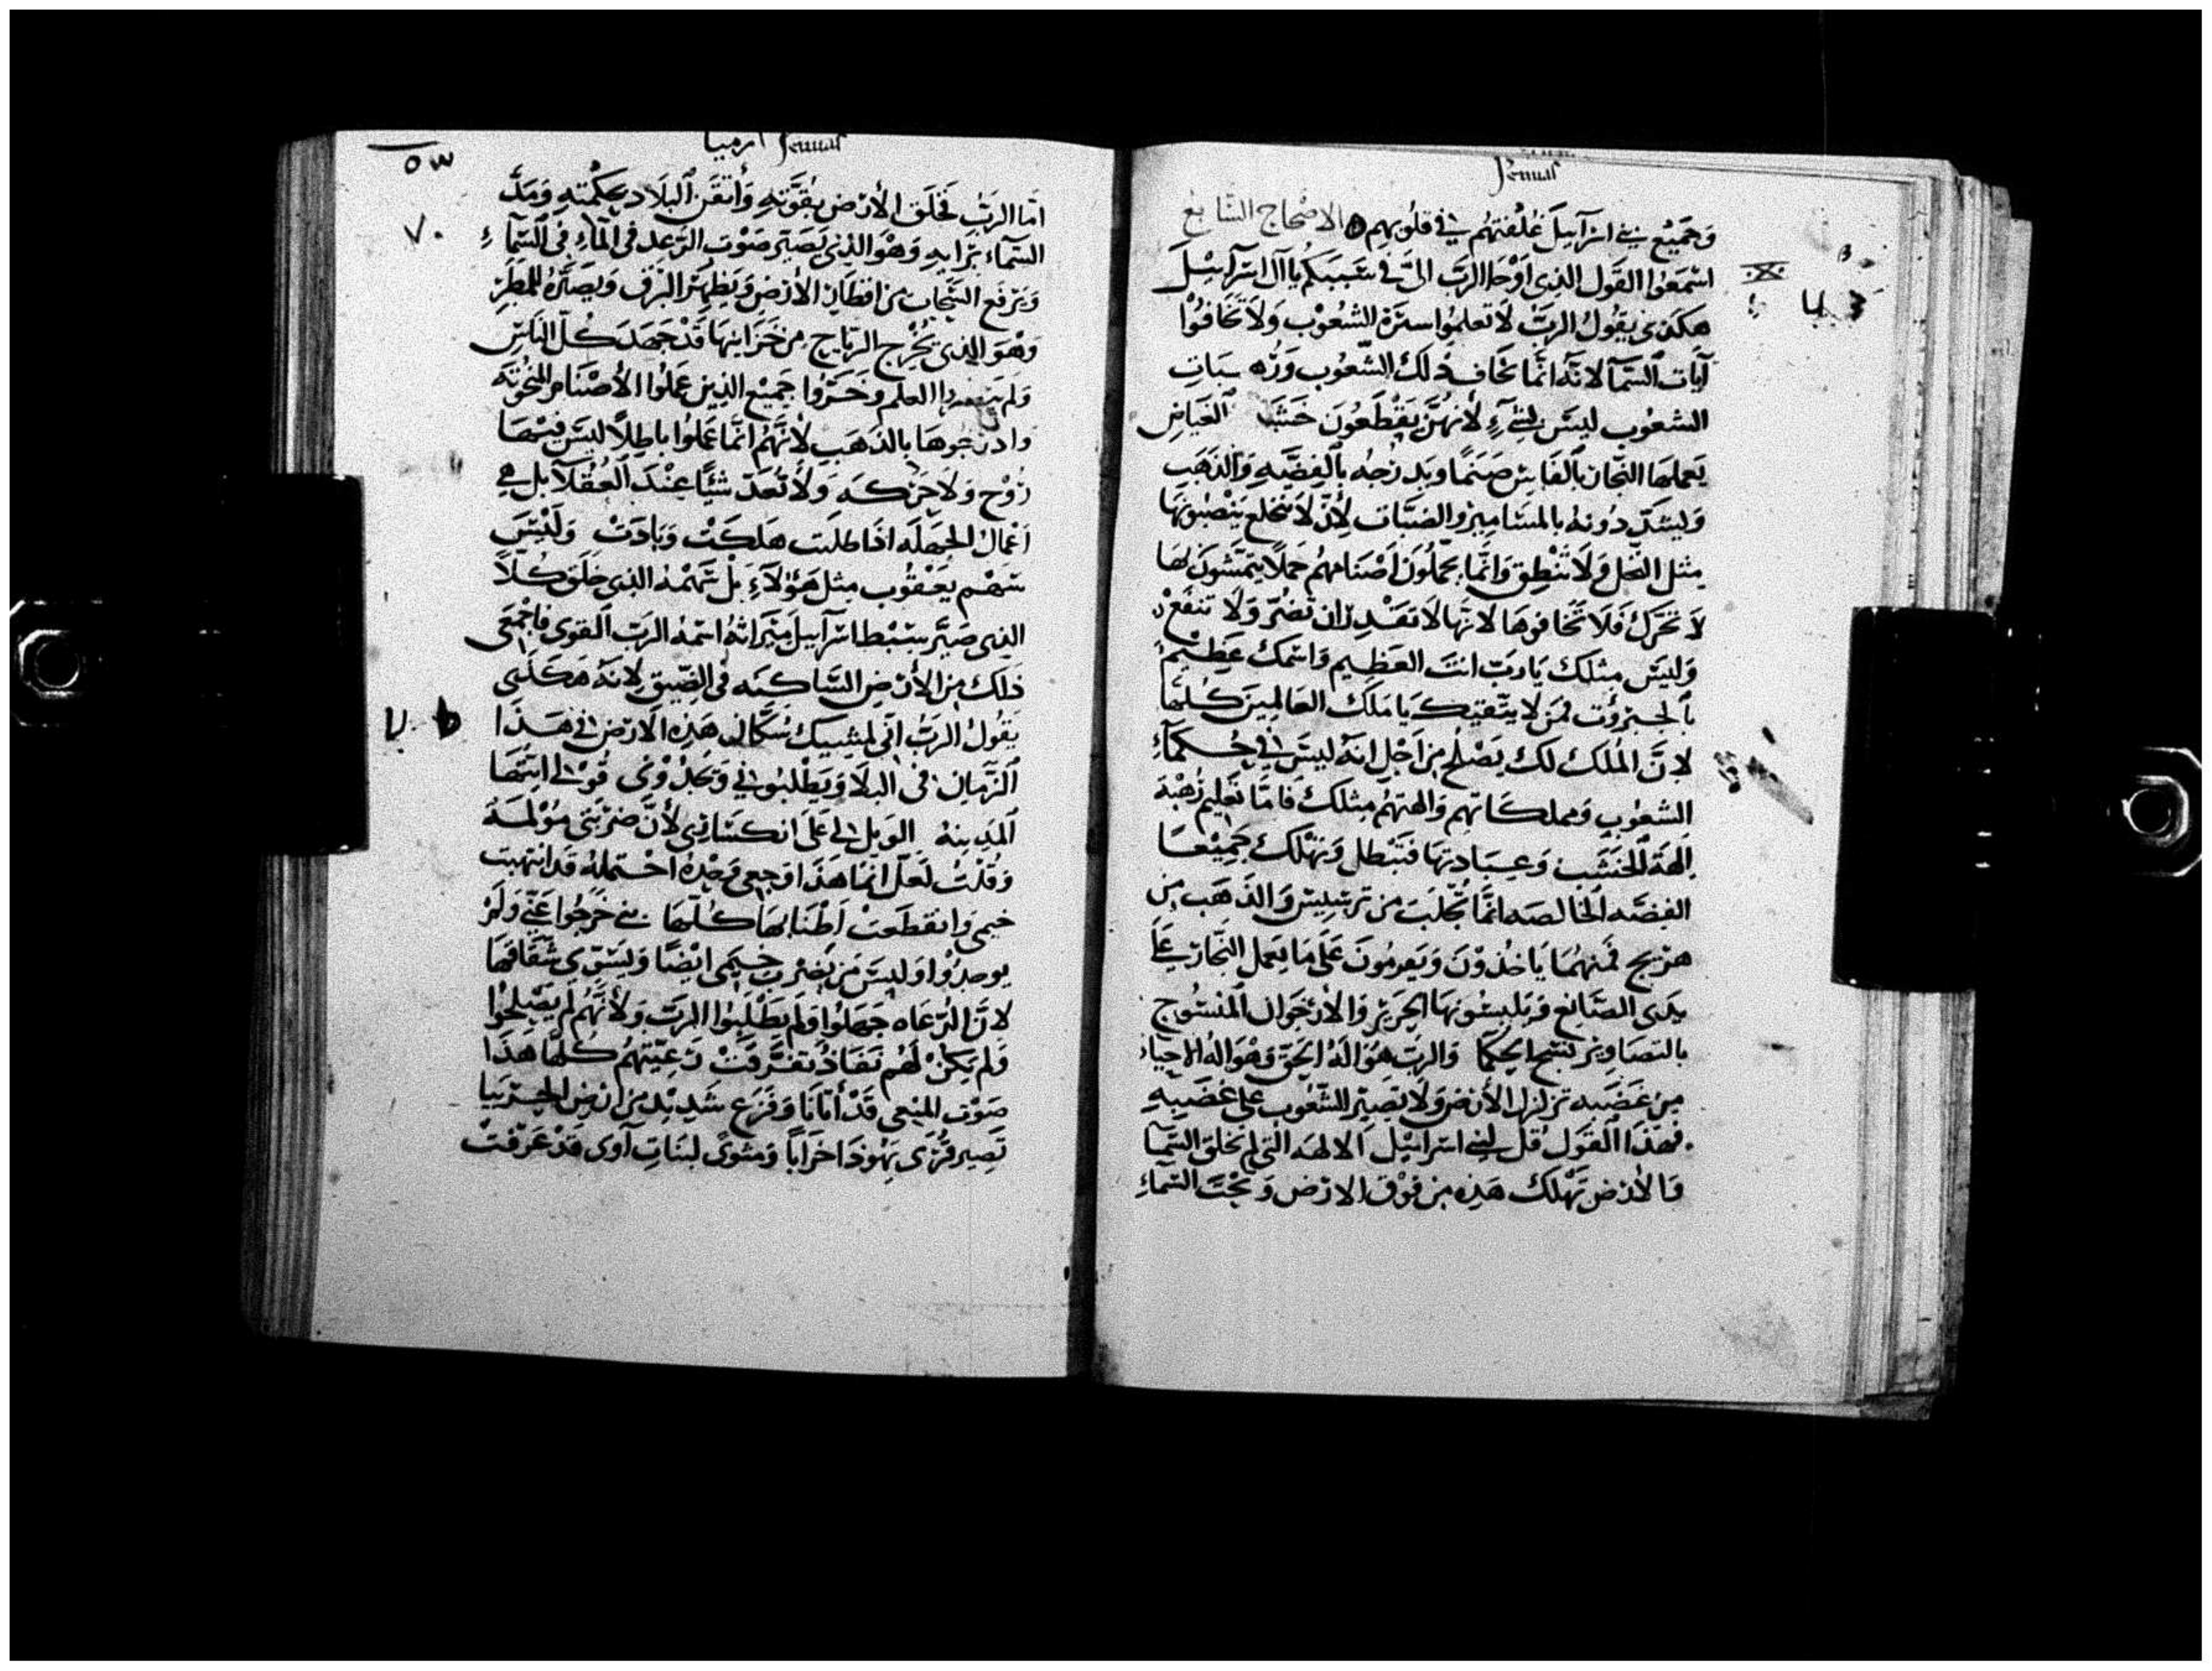 Jemias
وَجَميْع بني اسرَآييلَ غُلْفتهُم في قلوُبهم ه الاصْحاح السَّابع
اسْمعَوُا القَول الذِى اوْحَا الربّ الىَّ في سَببكم يا آل اسرآييْلَ
هكذى يقوُل الربّ لَا تعلموُا سترة الشعُوْب وَلَا تَخَافوُا
آيات السَّمآ لانّه انَّما تخَاف ذلك الشّعوُب
الشعوُب ليسَن لشيءٍ لأنهُنَّ يَقْطَعُونَ خَشَبَ الغَيَاضِ
يَعملهَا النجّار بالفَاسِ صَنمًا وَيدرُجه بالفِضَّهِ وَالذهَبِ
وَيشدّ دُونهُ بالمسَامير والضبَّات لأن لَا تنخلع ينْصبُونهَا
مثل النخل وَلَا تَنْطِق وَانَّما يحَملُونَ اصْنَامهُم حَملًا يتمَشّونَ لهَا
لَا تَحَرّك فَلَا تَخَافوهَا لانهَّا لَا تقَدِر ان تضُرّ وَلَا تنفَعْ
وَليسَ مثلك يَا رَبّ انتَ العَظِيم وَاسْمكَ عَظِيْمٌ
بالجبرُوت فمَن لَا يتّقيكَ يَا مَلكَ العَالمينَ كلهَا
لانَّ المُلك لكَ يصْلُح مِن اَجْل انّهُ ليسَ في حُكمَآءِ
الشعوُبِ وَمملكَاتهم وَالهتهُم مثلك فَامَّا تعَليم
الِهَة الخشَب وَعبَادتهَا فتبْطل وَتهْلك جَميْعًا
الفضّه الخالصَه انمَّا تُجْلَب من ترشيش وَالذهَب مِن
فمنهُمَا يَاخُذوْنَ وَيعرمُونَ عَلى مَا يعمل النجّار عَلى
يدَى الصَّايغ وَيلبسُونهَا الحَرير وَالأرْجَوان المنْسُوج
بالتصَاوير نسْج الحكمَا وَالربّ هُوَ الهُ الحَق وَهْوَ اله الاحياء
مِن غَضَبه تزلزل الأرض وَلَا تصِير الشّعُوب على غَضَبه
فهَذَا القَول قُل لبني اسْراييْل الالهَه التي لم تخلق السّمَآ
وَالأرْض تَهْلك هَذِه من فَوْق الارْض وَتحْتَ السّمَآءِ
٥٣
ارميا Jemias
امَّا الربّ فخَلقَ الأرْضَ بقُوَّتهِ وَأتْقَنَ البلَاد بحكْمتهِ وَمَدَّ
السَّمآء برَايهِ وَهْوَ الذِى يَصَيّر صَوْت الرّعد في المَاءِ في السّمَآءِ
وَيَرفَع السَّحَاب من اقطَار الأرْضِ وَيظْهِر البَرق وَيصَيّرهُ للمطَرِ
وَهْوَ الذِى يُخْرِج الرّيَاح مِن خَزَاينهَا قَدْ جَهَدَ كُلّ النَاسِ
وَلم العلم وَخَسَرُوا جَميْع الذِين عَملوُا الأصْنَام المنحُوتَه
وَادرَجُوهَا بالذهَبِ لأنَّهُم انمَّا عَملوُا باطلًا ليسَ فيْهَا
رُوْح وَلَا حَركَه وَلَا تُعَدّ شيئًا عِنْدَ العُقَلَا بل هِى
اَعْمال الجهَله اذَا طَلَبت هَلكَتْ وَبَادَتْ وَليْسَ
سَهْم يعْقوُب مثل هَؤلَآءِ بَلْ سَهمهُ الذِى خَلقَ كلًّا
الذِى صَيَّر سَبْط اسرآييل ميرَاثهُ اسْمهُ الربّ القوى فاجْمَعى
ذلك مِن الأرْضِ السَّاكنَه في الضّيق لانهُ هَكذَى
يَقوُل الربُّ انّى لمشبيك سُكَّان هَذِه الارْض في هَذَا
الزمَان في البلَا وَيطْلبُوني وَيجدُوْنى قوْلى ابنتهَا
المدينه الوَيل لى عَلى انكسَارى لأنَّ ضرْبتى مؤلمَه
وَقلتُ لَعَلّ انمَا هَذَا وَجعى وَحْدهُ احْتملهُ قَد انتهبت
خيمى وَانقطَعَتْ اَطْنَابهَا كلّهَا بنى خَرجُوا عَنّى وَلم
يوجدُوْا وَليسَ مَن يَضرب خيمى ايْضًا وَيسَوّى شقَاقهَا
لانَّ الرُّعَاه جَهلوُا وَلم يَطْلبُوا الربّ وَلأنَّهُم لم يَصْلحُوْا
وَلم يَكنْ لَهُم نَفَاذ تفَرَّقتْ رَعيّتهُم كلّهَا هَذَا
صَوْت المنبى قَدْ أتَانَا وَفَزَع شَديْد مِن ارْض الجرْبيَا
تَصير قُرَى يَهْوذا خرَابًا وَمثوىً لبنَات آوى قَدْ عَرَفتْ
٧٠